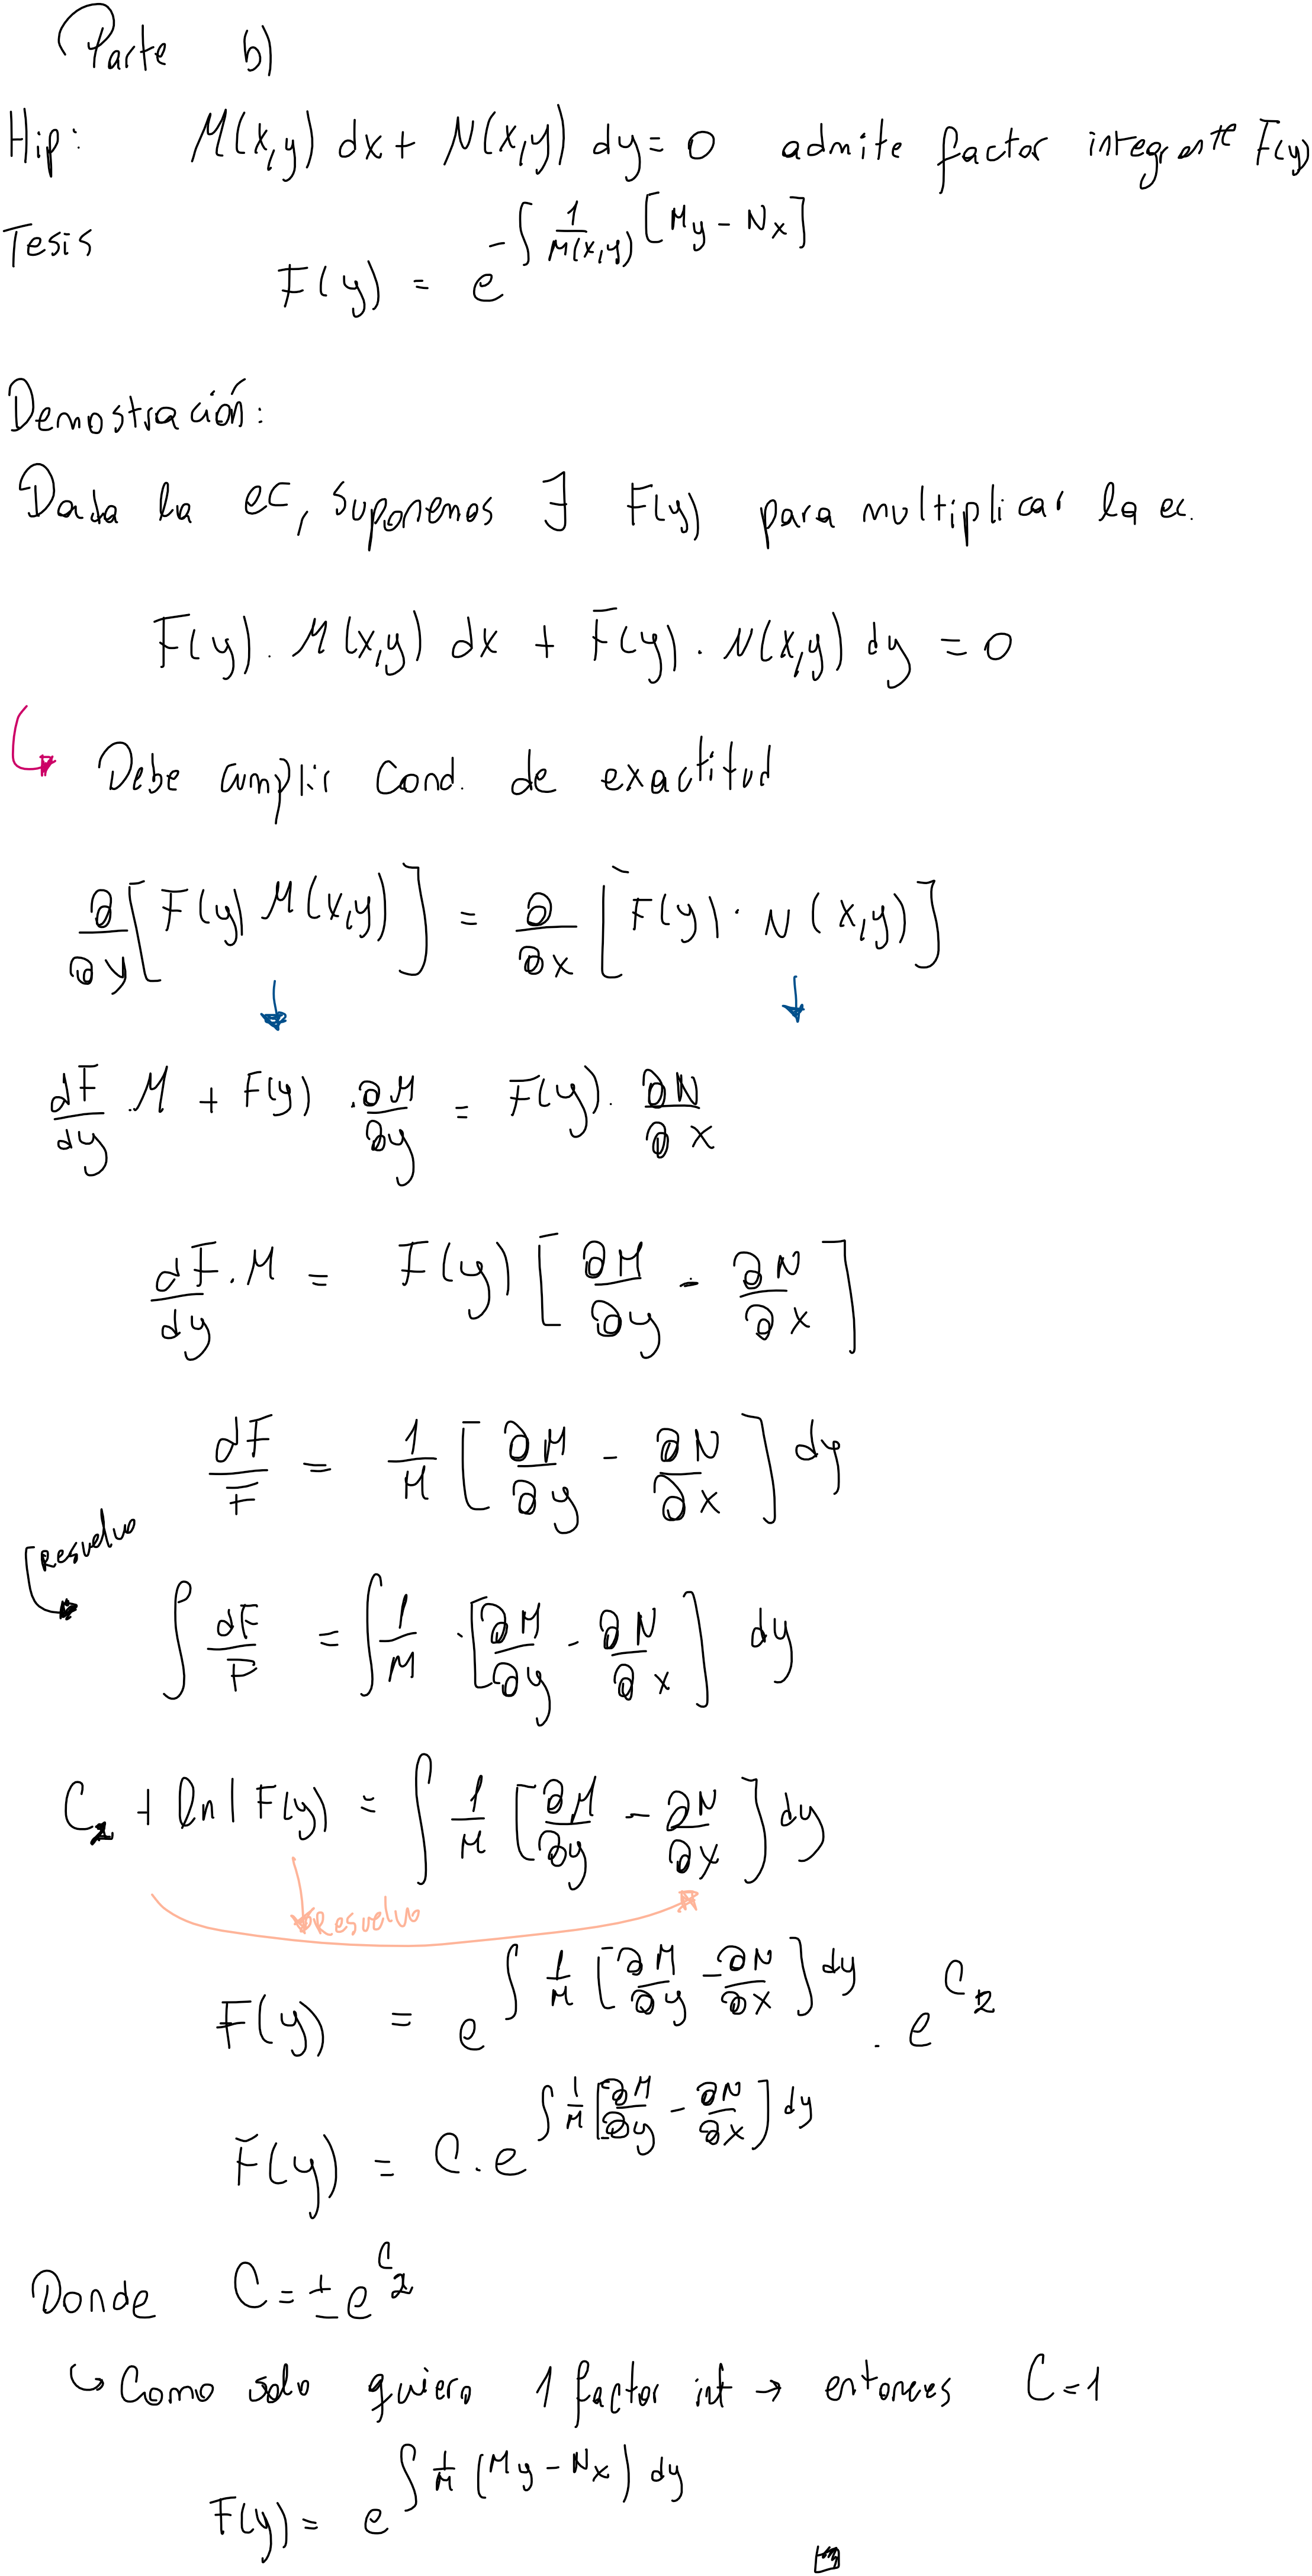 Parte b)
Hip: M(x,y) dx + N(x,y) dy = 0 admite factor integrante F(y)
Tesis F(y) = e^{-∫ 1/M(x,y) [My - Nx]}
Demostración:
Dada la ec, suponemos ∃ F(y) para multiplicar la ec.
F(y) . M(x,y) dx + F(y) . N(x,y) dy = 0
↳ Debe cumplir Cond. de exactitud
∂/∂y [F(y) M(x,y)] = ∂/∂x [F(y) · N(x,y)]
↓ ↓
dF/dy . M + F(y) . ∂M/∂y = F(y) . ∂N/∂x
dF/dy . M = F(y) [∂M/∂y - ∂N/∂x]
dF/F = 1/M [∂M/∂y - ∂N/∂x] dy
Resuelvo
∫ dF/F = ∫ 1/M · [∂M/∂y - ∂N/∂x] dy
C₂ + ln|F(y)| = ∫ 1/M [∂M/∂y - ∂N/∂x] dy
Resuelvo
F(y) = e^{∫ 1/M [∂M/∂y - ∂N/∂x] dy} . e^{C₂}
F(y) = C . e^{∫ 1/M [∂M/∂y - ∂N/∂x] dy}
Donde C = ± e^{C₂}
↳ Como solo quiero 1 factor int → entonces C = 1
F(y) = e^{∫ 1/M (My - Nx) dy}